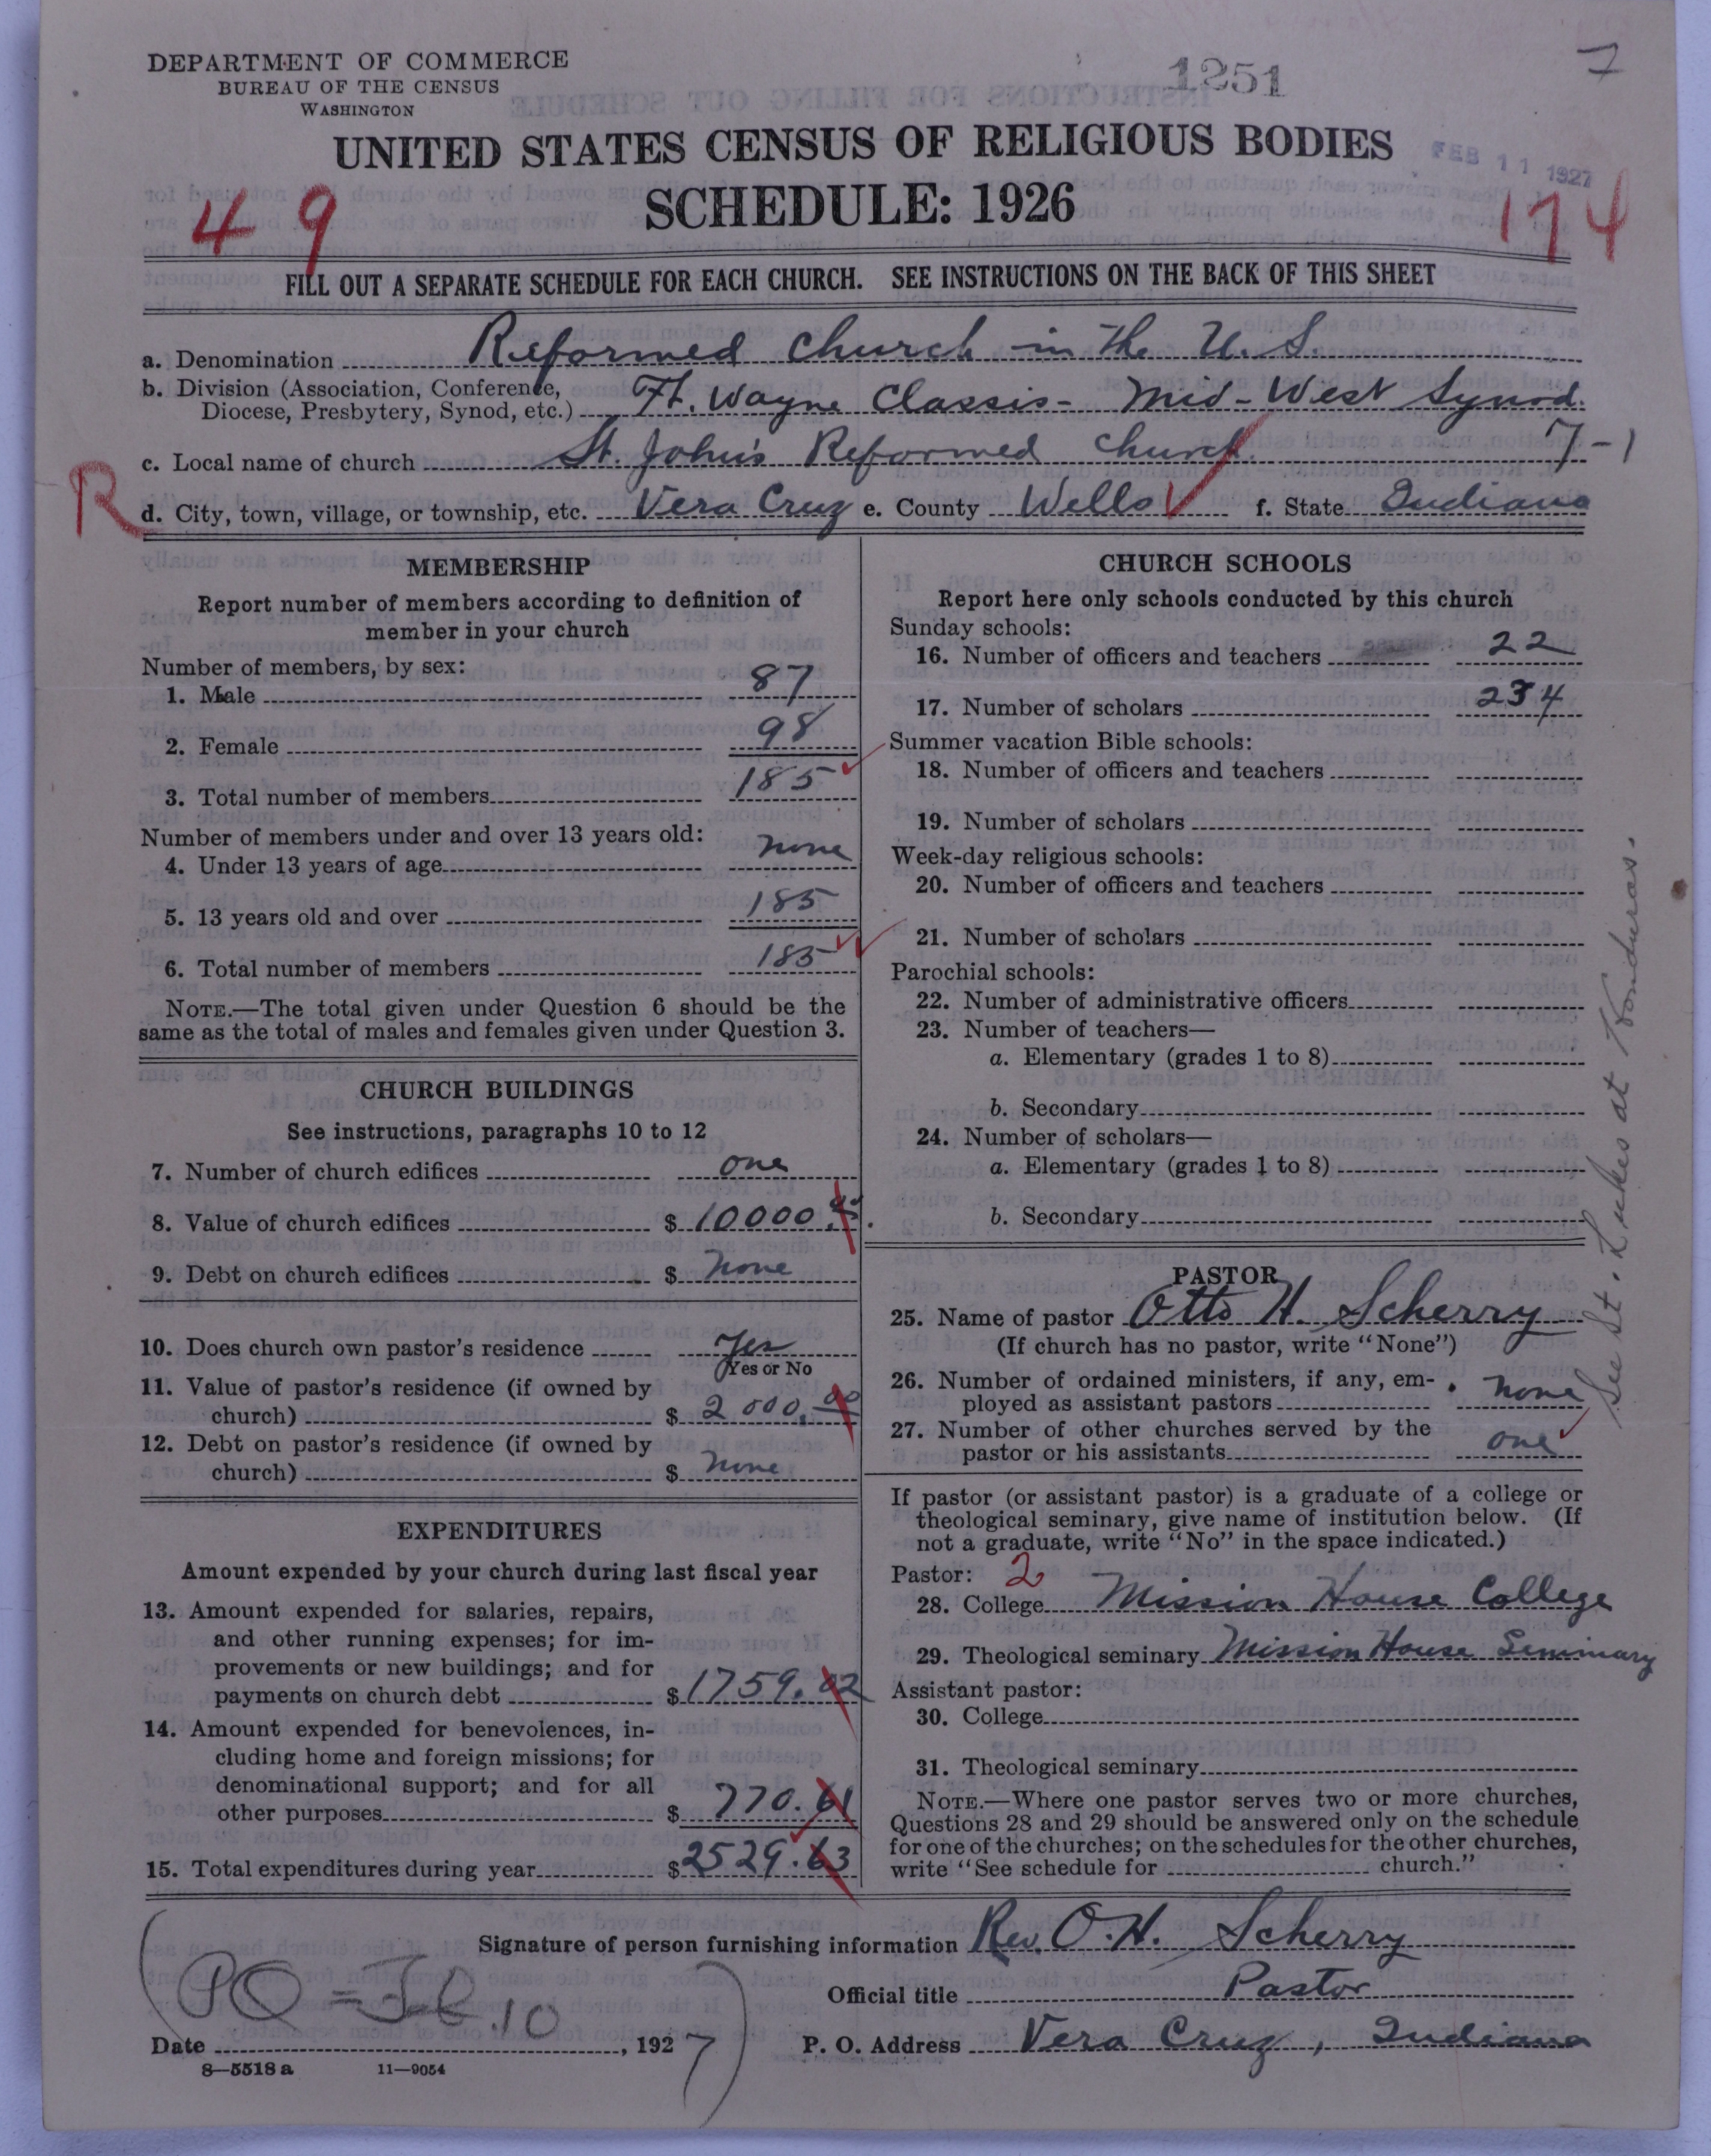 DEPARTMENT OF COMMERCE
BUREAU OF THE CENSUS
WASHINGTON
1251
7
UNITED STATES CENSUS OF RELIGIOUS BODIES
FEB 11 1927
SCHEDULE: 1926
49
174
FILL OUT A SEPARATE SCHEDULE FOR EACH CHURCH. SEE INSTRUCTIONS ON THE BACK OF THIS SHEET
a. Denomination Reformed Church in the U. S.
b. Division (Association, Conference,
Diocese, Presbytery, Synod, etc.) Ft. Wayne Classis - Mid-West Synod.
c. Local name of church St. John's Reformed Church. 7-1
R
d. City, town, village, or township, etc. Vera Cruz e. County Wells f. State Indiana
MEMBERSHIP
Report number of members according to definition of
member in your church
Number of members, by sex:
1. Male 87
2. Female 98
3. Total number of members 185
Number of members under and over 13 years old:
4. Under 13 years of age none
5. 13 years old and over 185
6. Total number of members 185
NOTE.—The total given under Question 6 should be the
same as the total of males and females given under Question 3.
CHURCH BUILDINGS
See instructions, paragraphs 10 to 12
7. Number of church edifices one
8. Value of church edifices $ 10000.00
9. Debt on church edifices $ None
10. Does church own pastor's residence Yes
Yes or No
11. Value of pastor's residence (if owned by
church) $ 2000.00
12. Debt on pastor's residence (if owned by
church) $ None
EXPENDITURES
Amount expended by your church during last fiscal year
13. Amount expended for salaries, repairs,
and other running expenses; for im-
provements or new buildings; and for
payments on church debt $ 1759.02
14. Amount expended for benevolences, in-
cluding home and foreign missions; for
denominational support; and for all
other purposes $ 770.61
15. Total expenditures during year $ 2529.63
CHURCH SCHOOLS
Report here only schools conducted by this church
Sunday schools:
16. Number of officers and teachers 22
17. Number of scholars 234
Summer vacation Bible schools:
18. Number of officers and teachers
19. Number of scholars
Week-day religious schools:
20. Number of officers and teachers
21. Number of scholars
Parochial schools:
22. Number of administrative officers
23. Number of teachers—
a. Elementary (grades 1 to 8)
b. Secondary
24. Number of scholars—
a. Elementary (grades 1 to 8)
b. Secondary
PASTOR
25. Name of pastor Otto H. Scherry
(If church has no pastor, write "None")
26. Number of ordained ministers, if any, em-
ployed as assistant pastors none
27. Number of other churches served by the
pastor or his assistants one
See St. Lukes at Honduras.
If pastor (or assistant pastor) is a graduate of a college or
theological seminary, give name of institution below. (If
not a graduate, write "No" in the space indicated.)
Pastor: 2
28. College Mission House College
29. Theological seminary Mission House Seminary
Assistant pastor:
30. College
31. Theological seminary
NOTE.—Where one pastor serves two or more churches,
Questions 28 and 29 should be answered only on the schedule
for one of the churches; on the schedules for the other churches,
write "See schedule for church."
Signature of person furnishing information Rev. O. H. Scherry
Official title Pastor
(PO = Feb. 10
Date , 1927)
P. O. Address Vera Cruz, Indiana
8—5518 a 11—9054